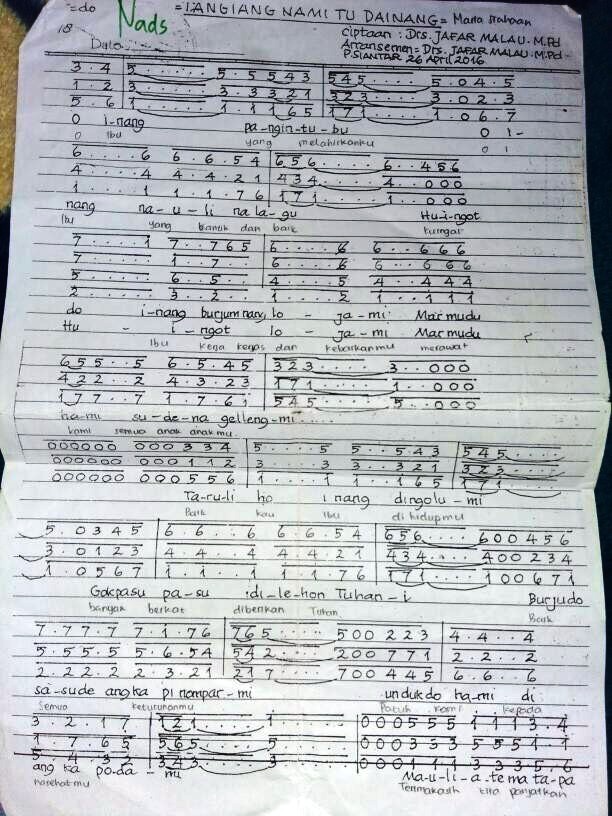 =do Nads =TANGIANG NAMI TU DAINANG= Marta Nrahaan
ciptaan: Drs. JAFAR MALAU.M.Pd
18 Arransemen= Drs. JAFAR MALAU.M.Pd
PSIANTAR 26 APRIL 2016
3 . 4 5 . . . . . 5 . 5 5 4 3 5 4 5 . . . . 5 . 0 4 . 5
1 . 2 3 . . . . . 3 . 3 3 2 1 5 2 3 . . . . 3 . 0 2 . 3
5 . 6 1 . . . . . 1 . 1 1 6 5 1 7 1 . . . . 1 . 0 6 . 7
O i-nang pa-ngin-tu-bu O i-
O Ibu yang melahirkanku O i
6 . . . . 6 6 . 6 . 5 4 6 5 6 . . . . 6 . . 4 5 6
4 . . . . 4 4 . 4 . 2 1 4 3 4 . . . . 4 . . 0 0 0
1 . . . . 1 1 . 1 . 7 6 1 7 1 . . . . 1 . . 0 0 0
nang na-u-li na la-gu Hu-i-ngot
Ibu yang cantik dan baik kuingat
7 . . . . 1 7 . . 7 6 5 6 . . . . 6 6 . . 6 6 6
7 . . . . 1 . 7 . 6 . . . . 6 6 . . 6 6 6
5 . . . . 6 . . 5 . . 4 . . . . 5 4 . . 4 4 4
2 . . . . 3 . . 2 . . 1 . . . . 2 1 . . 1 1 1
do i-nang burjum nang, lo - ja-mi Marmudu
Hu - i-ngot lo - ja-mi Marmudu
Ibu kerja keras dan kebaikanmu merawat
6 5 5 . . 5 6 . 5 . 4 5 3 2 3 . . . . 3 . . 0 0 0
4 2 2 . . 2 4 . 3 . 2 3 1 7 1 . . . . 1 . . 0 0 0
1 7 7 . . 7 1 . 7 6 1 5 4 5 . . . . 5 . . 0 0 0
ha-mi su-de-na gelleng-mi....
kami semua anak anakmu
0 0 0 0 0 0 0 0 0 3 3 4 5 . . . . 5 5 . . 5 4 3 5 4 5 . . . .
0 0 0 0 0 0 0 0 0 1 1 2 3 . . . . 3 3 . . 3 2 1 3 2 3 . . . .
0 0 0 0 0 0 0 0 0 5 5 6 1 . . . . 1 1 . . 1 6 5 1 7 1 . . . .
Ta-ru-li ho inang dingolu-mi
Baik kau Ibu di hidupmu
5 . 0 3 4 5 6 . 6 . . 6 6 . 6 . 5 4 6 5 6 . . . . 6 0 0 4 5 6
3 . 0 1 2 3 4 . 4 . . 4 4 . 4 . 2 1 4 3 4 . . . . 4 0 0 2 3 4
1 . 0 5 6 7 1 . 1 . . 1 1 . 1 . 7 6 1 7 1 . . . . 1 0 0 6 7 1
Gokpasu pa-su di-le-hon Tuhan-i Burjudo
banyak berkat diberikan Tuhan Baik
7 . 7 7 . 7 7 . 1 . 7 6 7 6 5 . . . . 5 0 0 2 2 3 4 . 4 . . 4
5 . 5 5 . 5 5 . 6 . 5 4 5 4 2 . . . . 2 0 0 7 7 1 2 . . 2 . . 2
2 . 2 2 . 2 2 . 3 . 2 1 2 1 7 . . . . 7 0 0 4 4 5 6 . 6 . . 6
sa-sude angka pinompar-mi unduk do ha-mi di
Semua keturunanmu Patuh kami kepada
3 . 2 . 1 7 1 2 1 . . . . 1 . . . . 0 0 0 5 5 5 1 1 1 3 . 4
1 . 7 . 6 5 5 6 5 . . . . 5 . . . . 0 0 0 3 3 3 5 5 5 1 . 1
5 . 4 . 3 2 3 4 3 . . . . 3 . . . . 0 0 0 1 1 1 3 3 3 5 . 6
ang ka po-da - mu Ma-u-li-a-te ma ta-pa
nasehatmu Terimakasih kita panjatkan